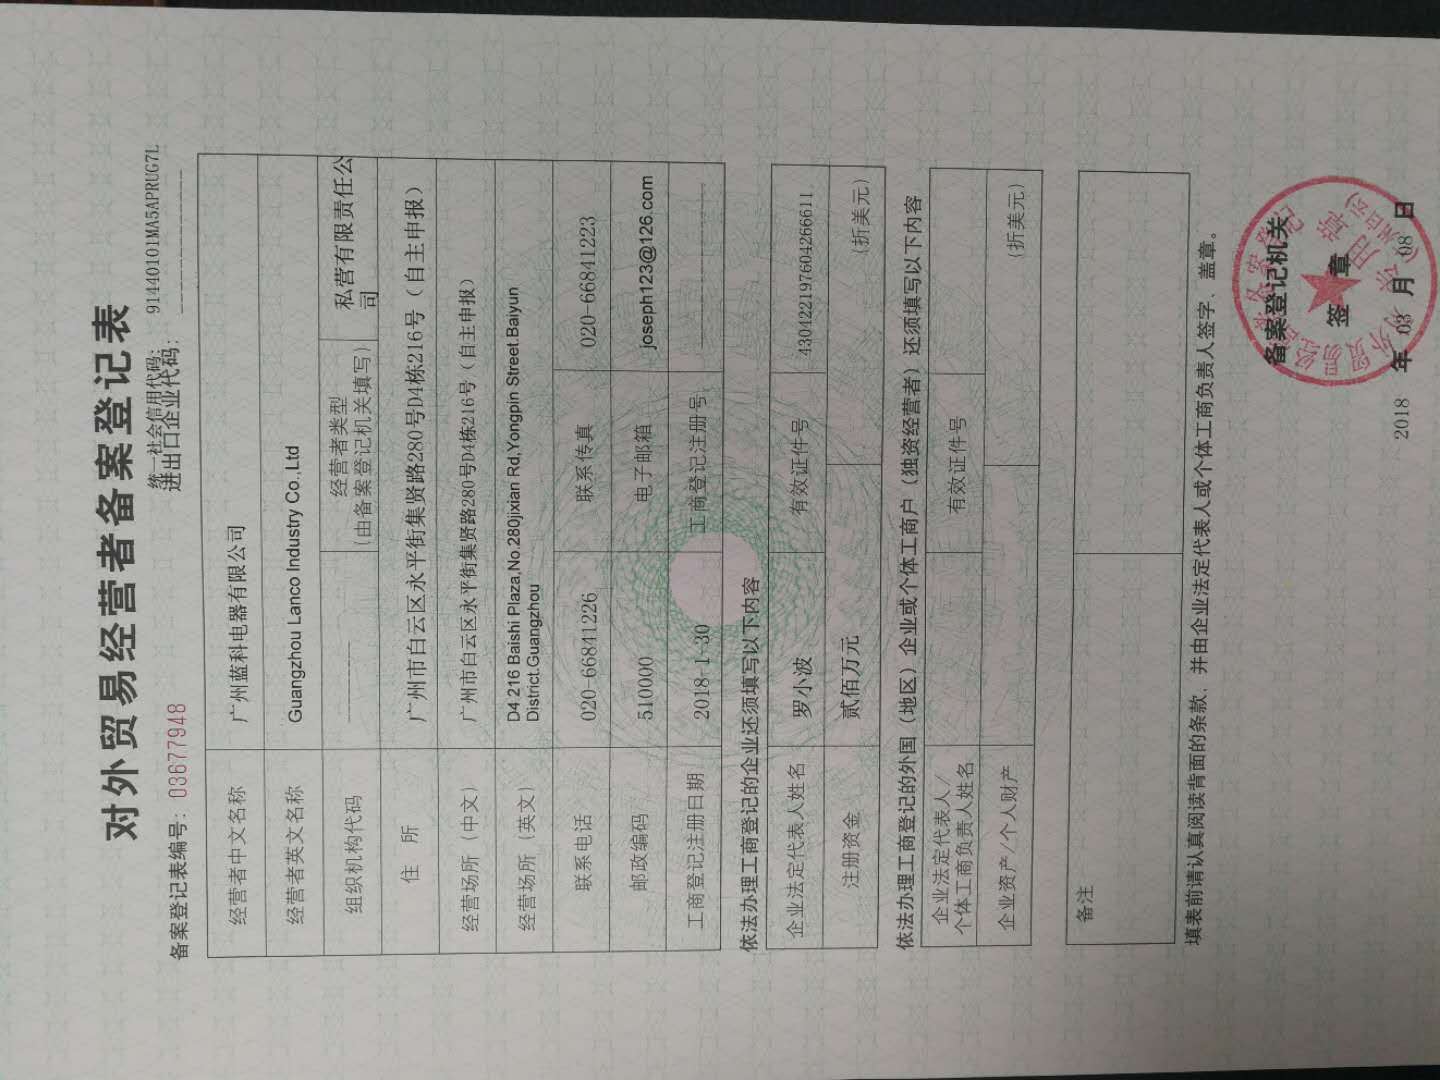 对外贸易经营者备案登记表
统一社会信用代码: 91440101MA5APRUG7L
备案登记表编号: 03677948
进出口企业代码:
经营者中文名称 广州蓝科电器有限公司
经营者英文名称 Guangzhou Lanco Industry Co.,Ltd
组织机构代码 经营者类型
(由备案登记机关填写) 私营有限责任公
司
住 所 广州市白云区永平街集贤路280号D4栋216号（自主申报）
经营场所（中文） 广州市白云区永平街集贤路280号D4栋216号（自主申报）
经营场所（英文） D4 216 Baishi Plaza,No.280jixian Rd,Yongpin Street.Baiyun
District.Guangzhou
联系电话 020-66841226 联系传真 020-66841223
邮政编码 510000 电子邮箱 joseph123@126.com
工商登记注册日期 2018-1-30 工商登记注册号
依法办理工商登记的企业还须填写以下内容
企业法定代表人姓名 罗小波 有效证件号 430422197604266611
注册资金 贰佰万元 (折美元)
依法办理工商登记的外国（地区）企业或个体工商户（独资经营者）还须填写以下内容
企业法定代表人/
个体工商负责人姓名 有效证件号
企业资产/个人财产 (折美元)
备注
填表前请认真阅读背面的条款，并由企业法定代表人或个体工商负责人签字、盖章。
备案登记机关
签 章
2018 年 03 月 08 日